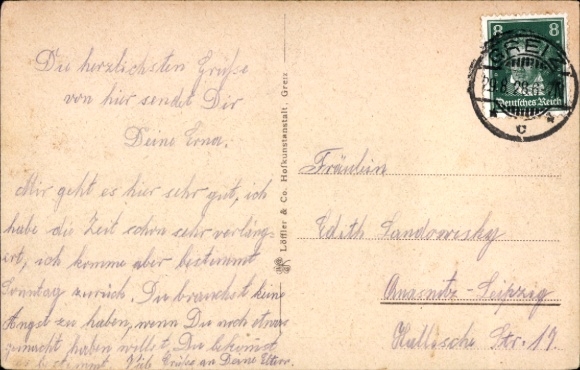 Die herzlichsten Grüße
von hier sendet Dir
Deine Erna.
Mir geht es hier sehr gut, ich
habe die Zeit schon sehr verläng-
ert, ich komme aber bestimmt
Sonntag zurück. Du brauchst keine
Angst zu haben, wenn Du noch etwas
gemacht haben willst. Du bekommst
es bestimmt. Viele Grüße an Deine Eltern.
Löffler & Co. Hofkunstanstalt, Greiz
8 8
GREIZ
Deutsches Reich
c
Fräulein
Edith Landowsky
Quasnitz-Leipzig
Hallische Str. 19